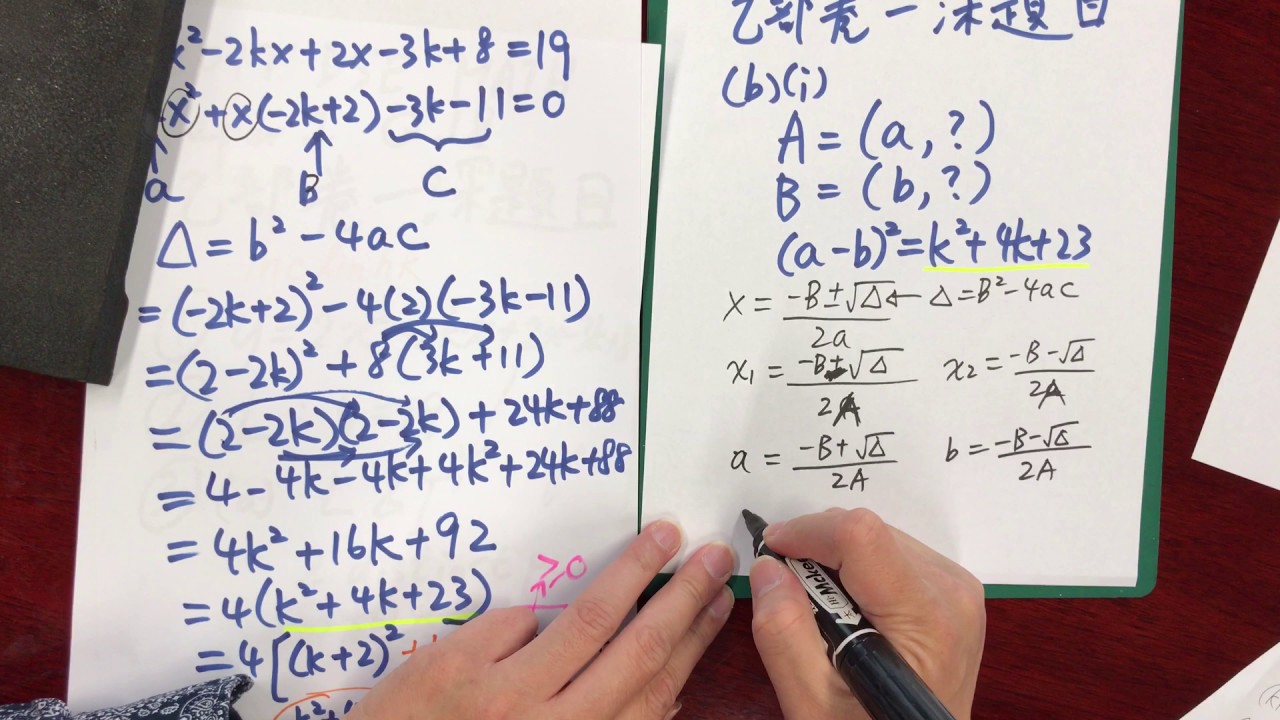 x²-2kx+2x-3k+8=19
x²+x(-2k+2)-3k-11=0
a B C
Δ=b²-4ac
=(-2k+2)²-4(2)(-3k-11)
=(2-2k)²+8(3k+11)
=(2-2k)(2-2k)+24k+88
=4-4k-4k+4k²+24k+88
=4k²+16k+92
=4(k²+4k+23) ≥0
=4[(k+2)²
乙部壳一深題目
(b)(i)
A=(a,?)
B=(b,?)
(a-b)²=k²+4k+23
x=(-B±√Δ)/2a ← Δ=B²-4ac
x₁=(-B+√Δ)/2A x₂=(-B-√Δ)/2A
a=(-B+√Δ)/2A b=(-B-√Δ)/2A
Mckee